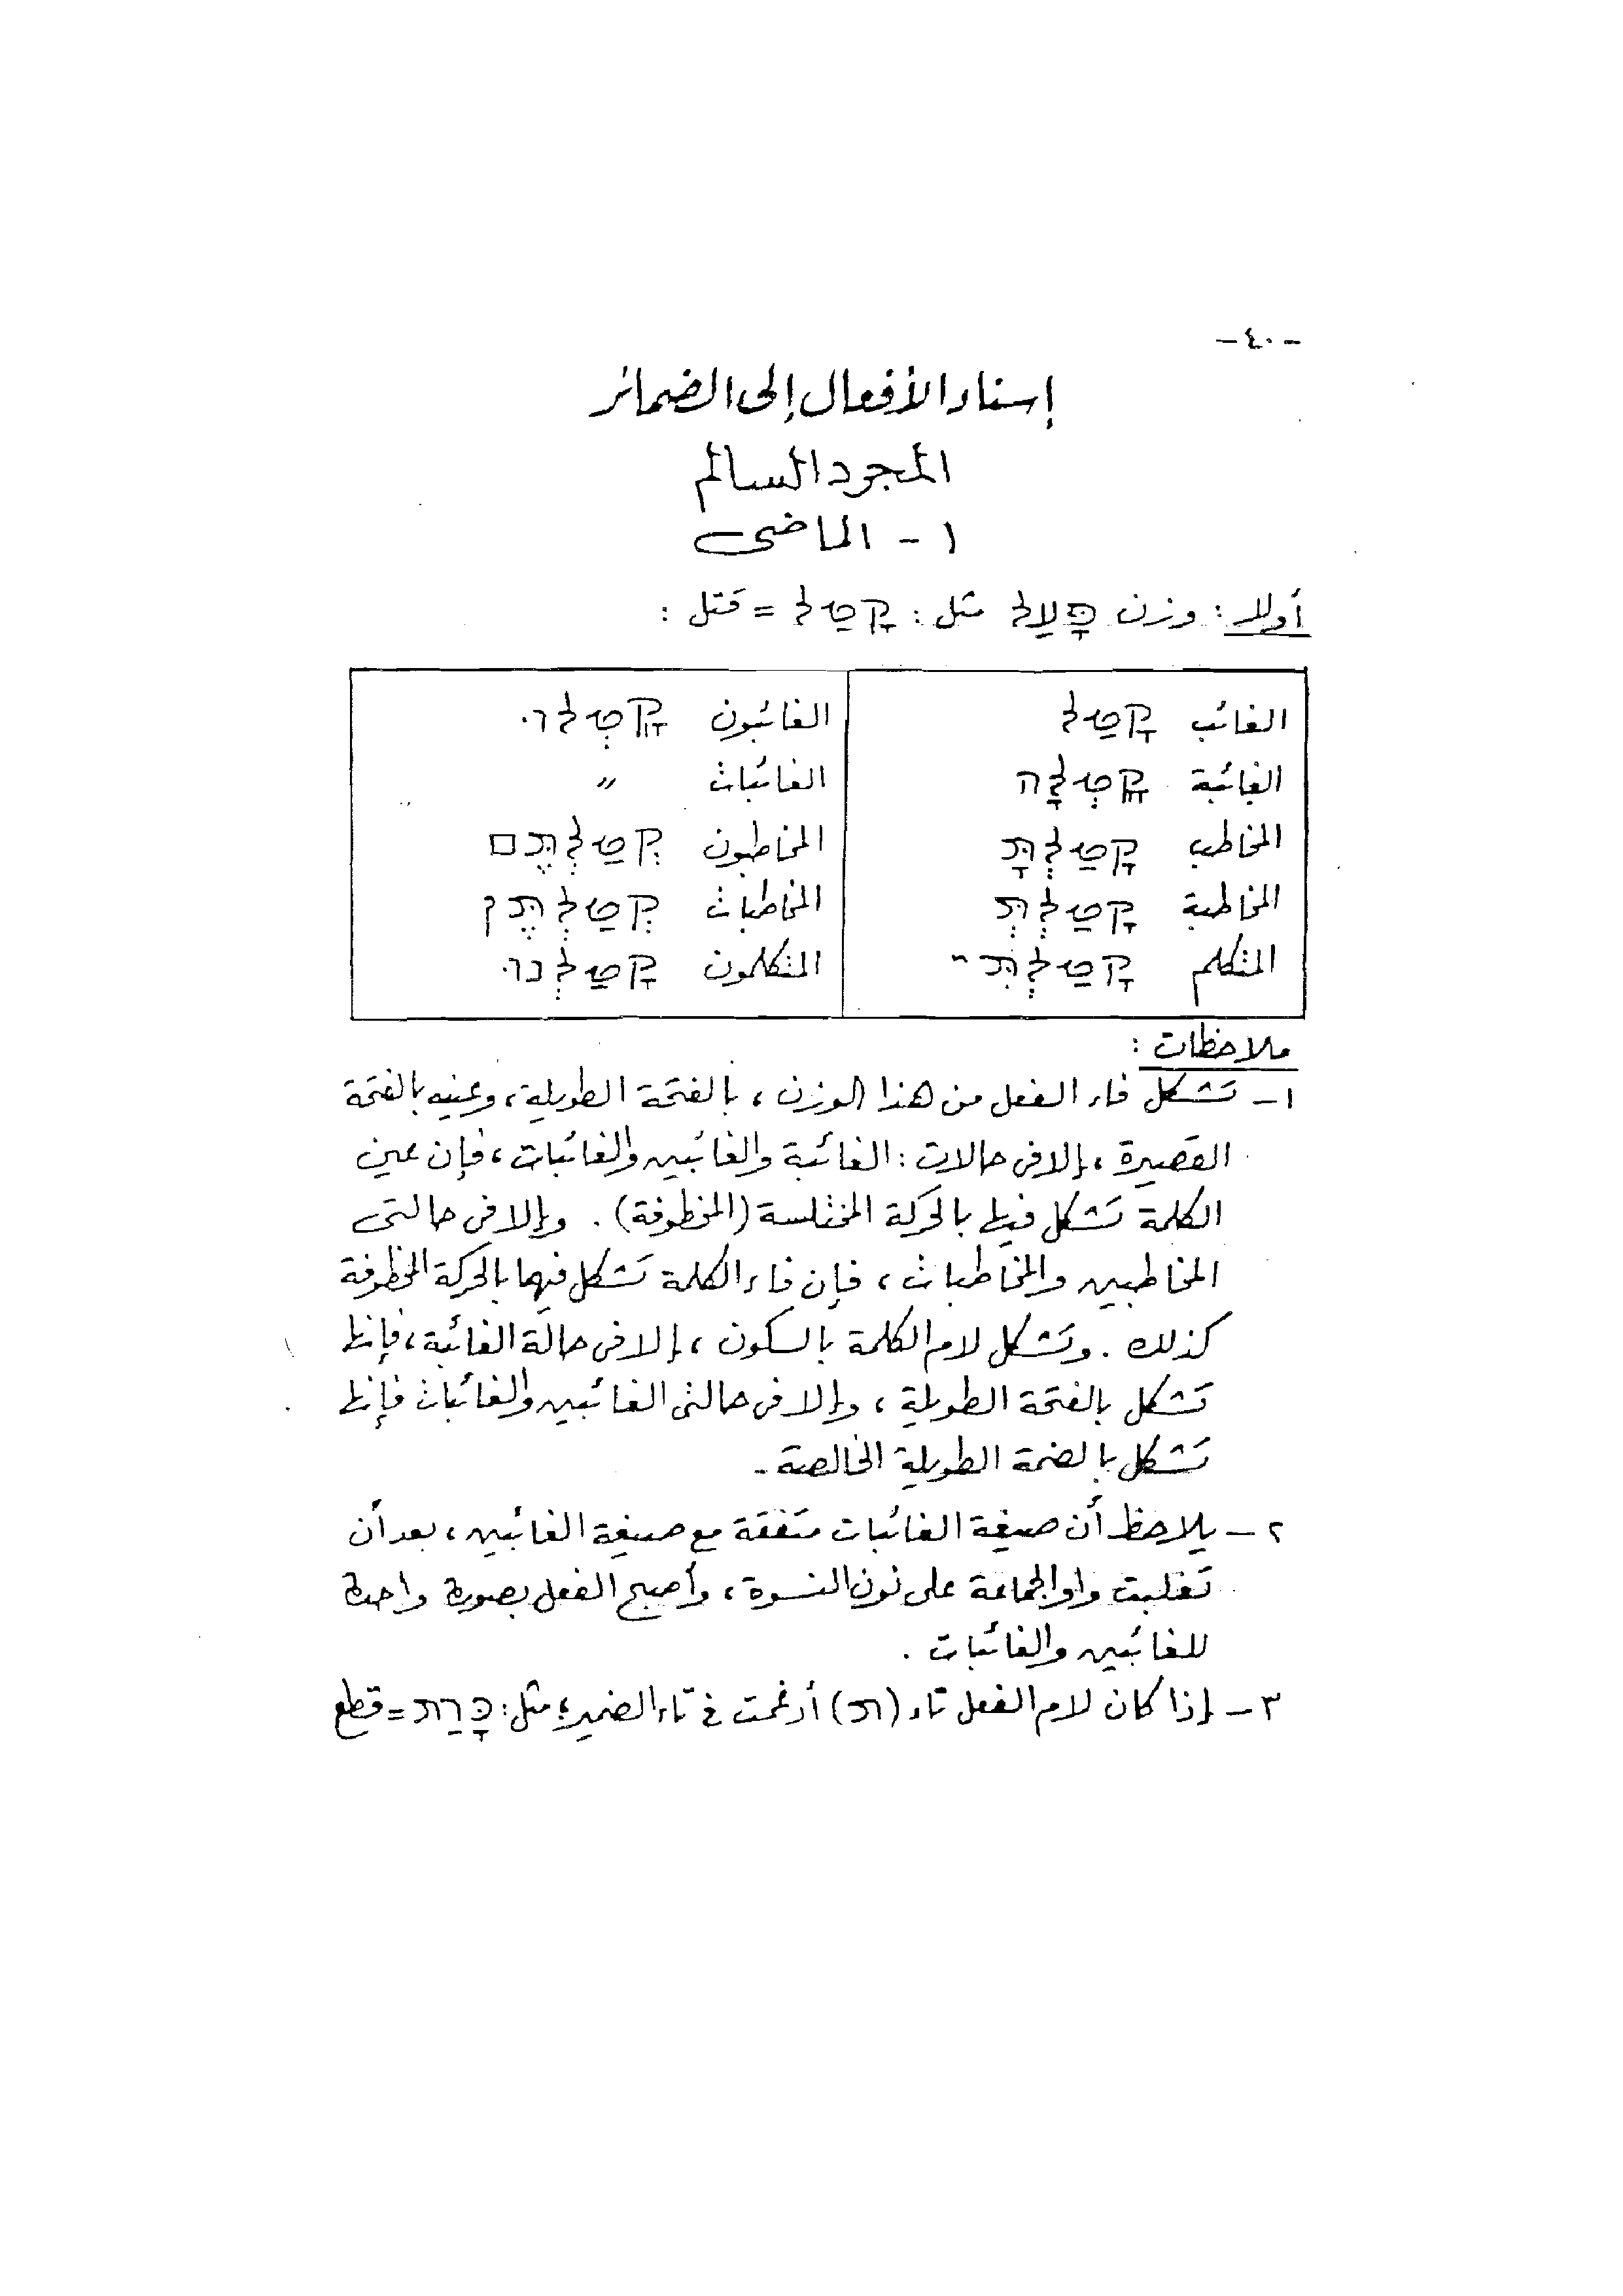 -٤٠-
إسناد الأفعال إلى الضمائر
المجرد السالم
١- الماضى
أولا: وزن פָּעַל مثل: קָטַל = قَتل:
الغائب קָטַל الغائبون קָֽטְלוּ
الغائبة קָֽטְלָה الغائبات "
المخاطب קָטַלְתָּ المخاطبون קְטַלְתֶּם
المخاطبة קָטַלְתְּ المخاطبات קְטַלְתֶּן
المتكلم קָטַלְתִּי المتكلمون קָטַלְנוּ
ملاحظات:
١- تَشكل فاء الفعل من هذا الوزن، بالفتحة الطويلة، وعينه بالفتحة
القصيرة، إلا فى حالات: الغائبة والغائبين والغائبات، فإن عين
الكلمة تشكل فيها بالحركة المختلسة (المخطوفة). وإلا فى حالتى
المخاطبين والمخاطبات، فإن فاء الكلمة تشكل فيهما بالحركة المخطوفة
كذلك. وتشكل لام الكلمة بالسكون، إلا فى حالة الغائبة، فإنها
تشكل بالفتحة الطويلة، وإلا فى حالتى الغائبين والغائبات فإنها
تشكل بالضمة الطويلة الخالصة-
٢- يلاحظ أن صيغة الغائبات متفقة مع صيغة الغائبين، بعد أن
تغلبت واو الجماعة على نون النسوة، وأصبح الفعل بصورة واحدة
للغائبين والغائبات.
٣- إذا كان لام الفعل تاء (ת) أدغمت فى تاء الضمير؛ مثل: כָּרַת = قطع